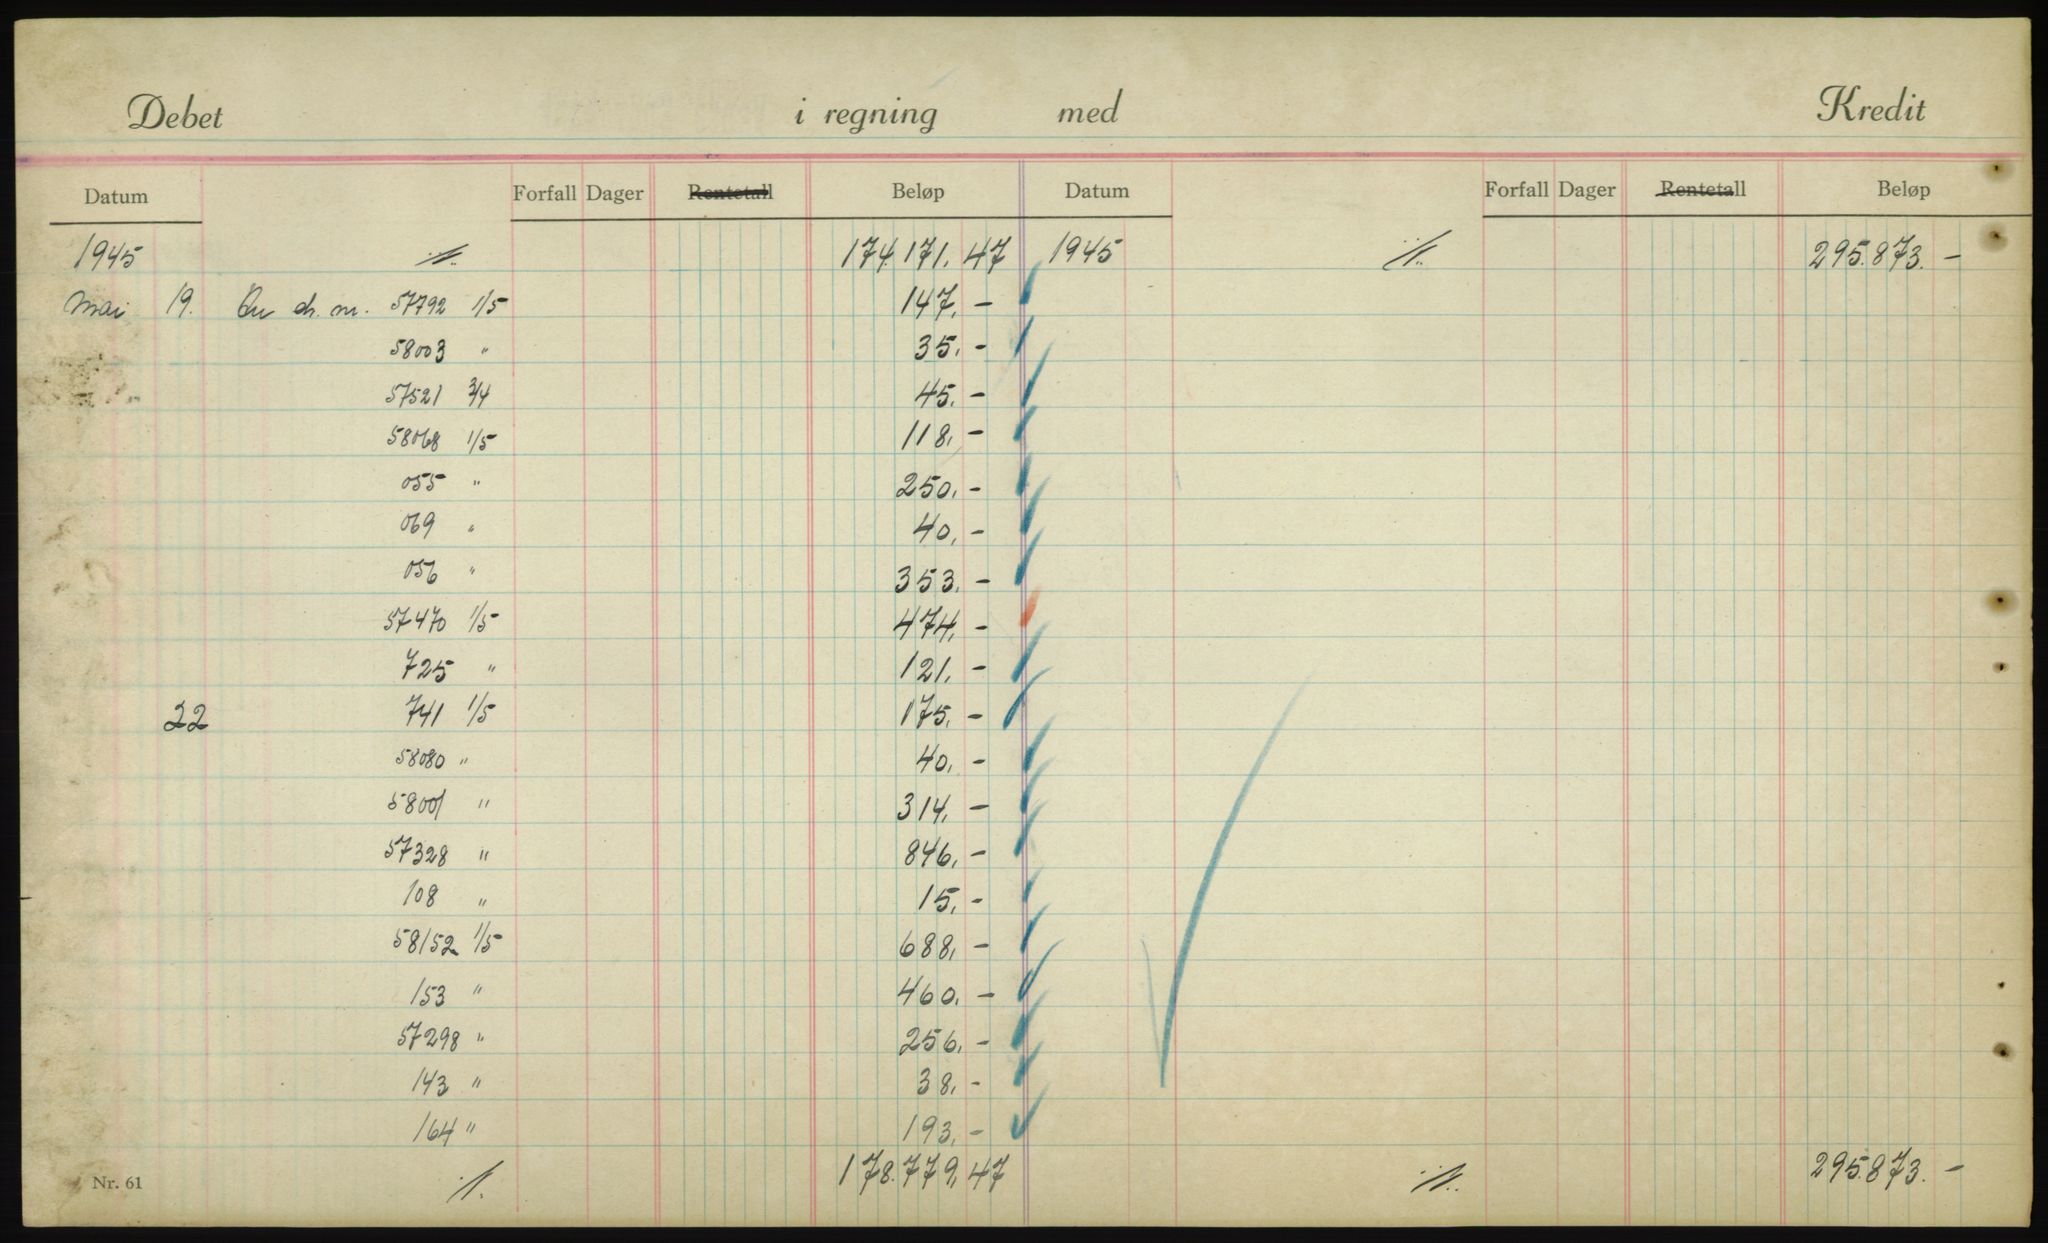 Debet i regning med Kredit
Datum Forfall Dager Rentetall Beløp Datum Forfall Dager Rentetall Beløp
1945 174.171.47 1945 295.873.-
Mai 19. An ch. nr. 57792 1/5 147.-
58003 " 35.-
57521 3/4 45.-
58068 1/5 118.-
055 " 250.-
069 " 40.-
056 " 353.-
57470 1/5 474.-
725 " 121.-
22 741 1/5 175.-
58080 " 40.-
58001 " 314.-
57328 " 846.-
108 " 15.-
58152 1/5 688.-
153 " 460.-
57298 " 256.-
143 " 38.-
164 " 193.-
178.779,47 295.873.-
Nr. 61